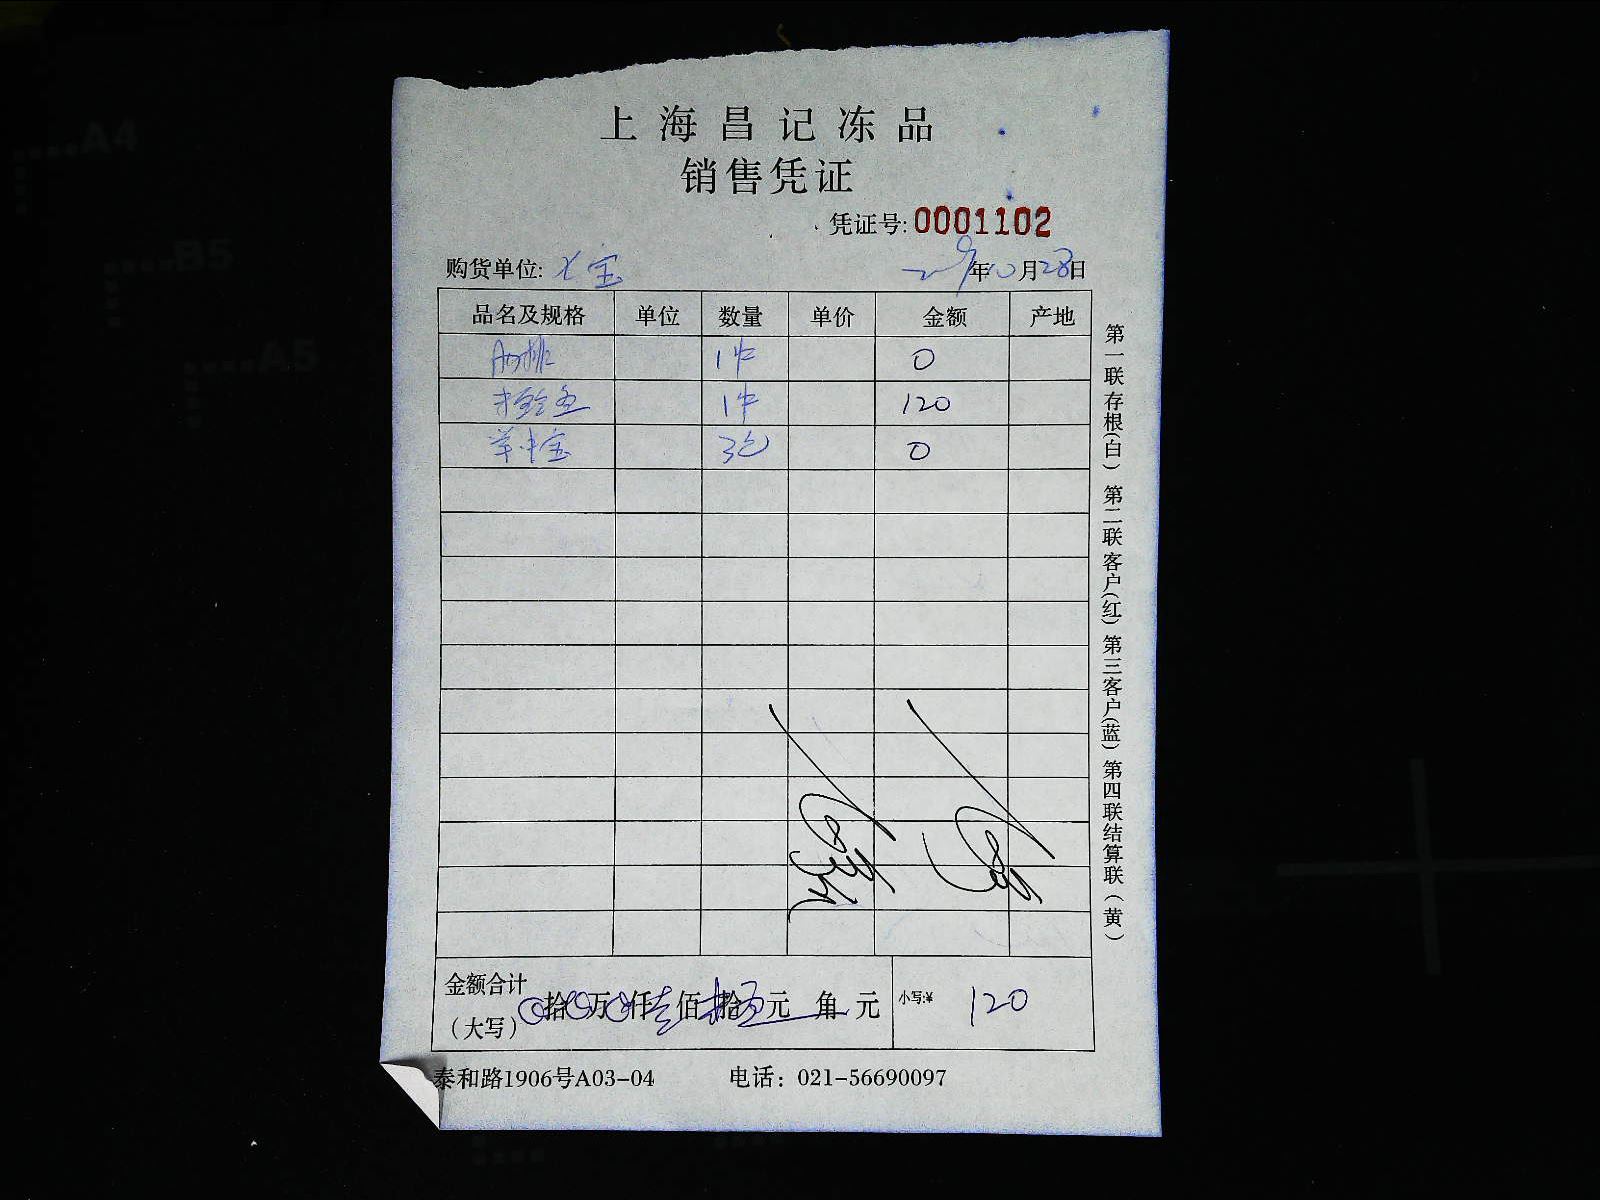 上海昌记冻品
销售凭证
凭证号: 0001102
购货单位: 宝 年10月28日
品名及规格 单位 数量 单价 金额 产地
1件 0
1件 120
羊中宝 3包 0
金额合计（大写） 拾 万 仟 佰 拾 元 角 元 小写:¥ 120
泰和路1906号A03-04 电话：021-56690097
第一联存根(白) 第二联客户(红) 第三客户(蓝) 第四联结算联(黄)
A4
B5
A5